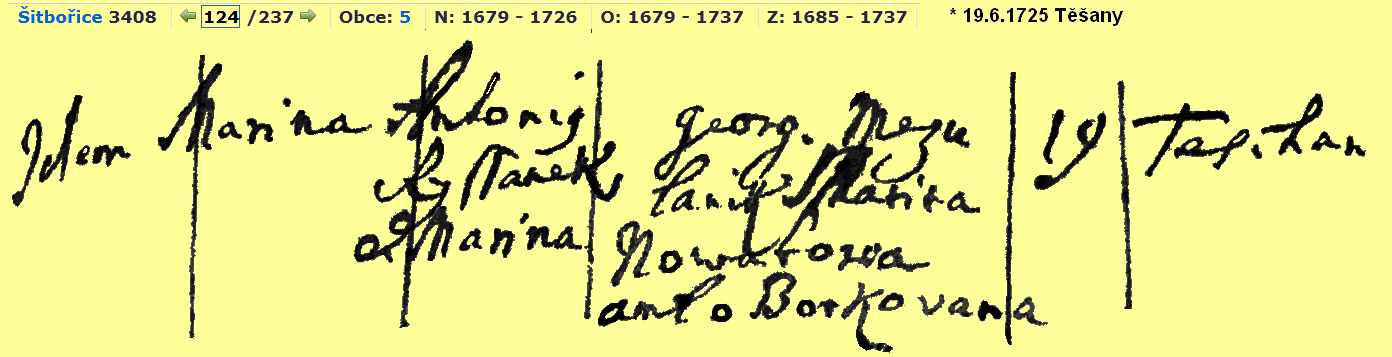 Šitbořice 3408 124 /237 Obce: 5 N: 1679 - 1726 O: 1679 - 1737 Z: 1685 - 1737 * 19.6.1725 Těšany
Idem Marina Antonig Georg. Mezu 19 Tes.han
lanig Marina
& Marina Nowakowa
ambo Borkovana